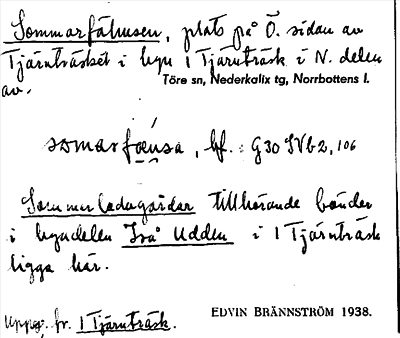 Sommarfähusen, plats på Ö. sidan av
Tjärnträsket i byn 1 Tjärnträsk i N. delen
av.
Töre sn, Nederkalix tg, Norrbottens l.
bf.: G30 IVb2, 106
Sommarladugårdar tillhörande bönder
i byadelen Två Udden i 1 Tjärnträsk
ligga här.
Uppg. fr. 1 Tjärnträsk.
EDVIN BRÄNNSTRÖM 1938.